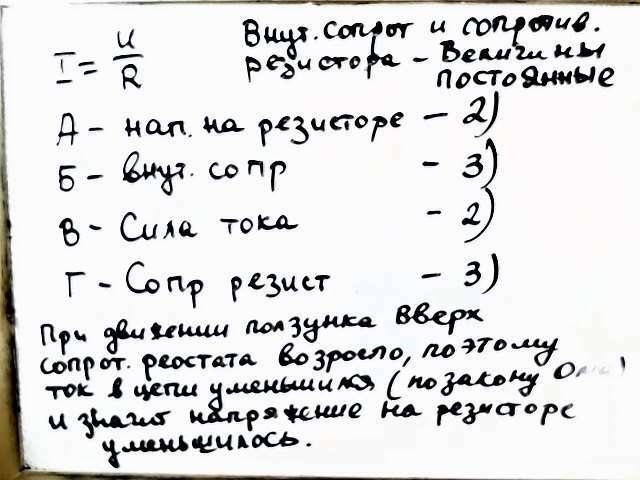 I = U/R
Внут. сопрот и сопротив.
резистора - Величины
постоянные
А - нап. на резисторе - 2)
Б - внут. сопр - 3)
В - Сила тока - 2)
Г - Сопр резист - 3)
При движении ползунка вверх
сопрот. реостата возросло, поэтому
ток в цепи уменьшился (по закону Ома)
и значит напряжение на резисторе
уменьшилось.